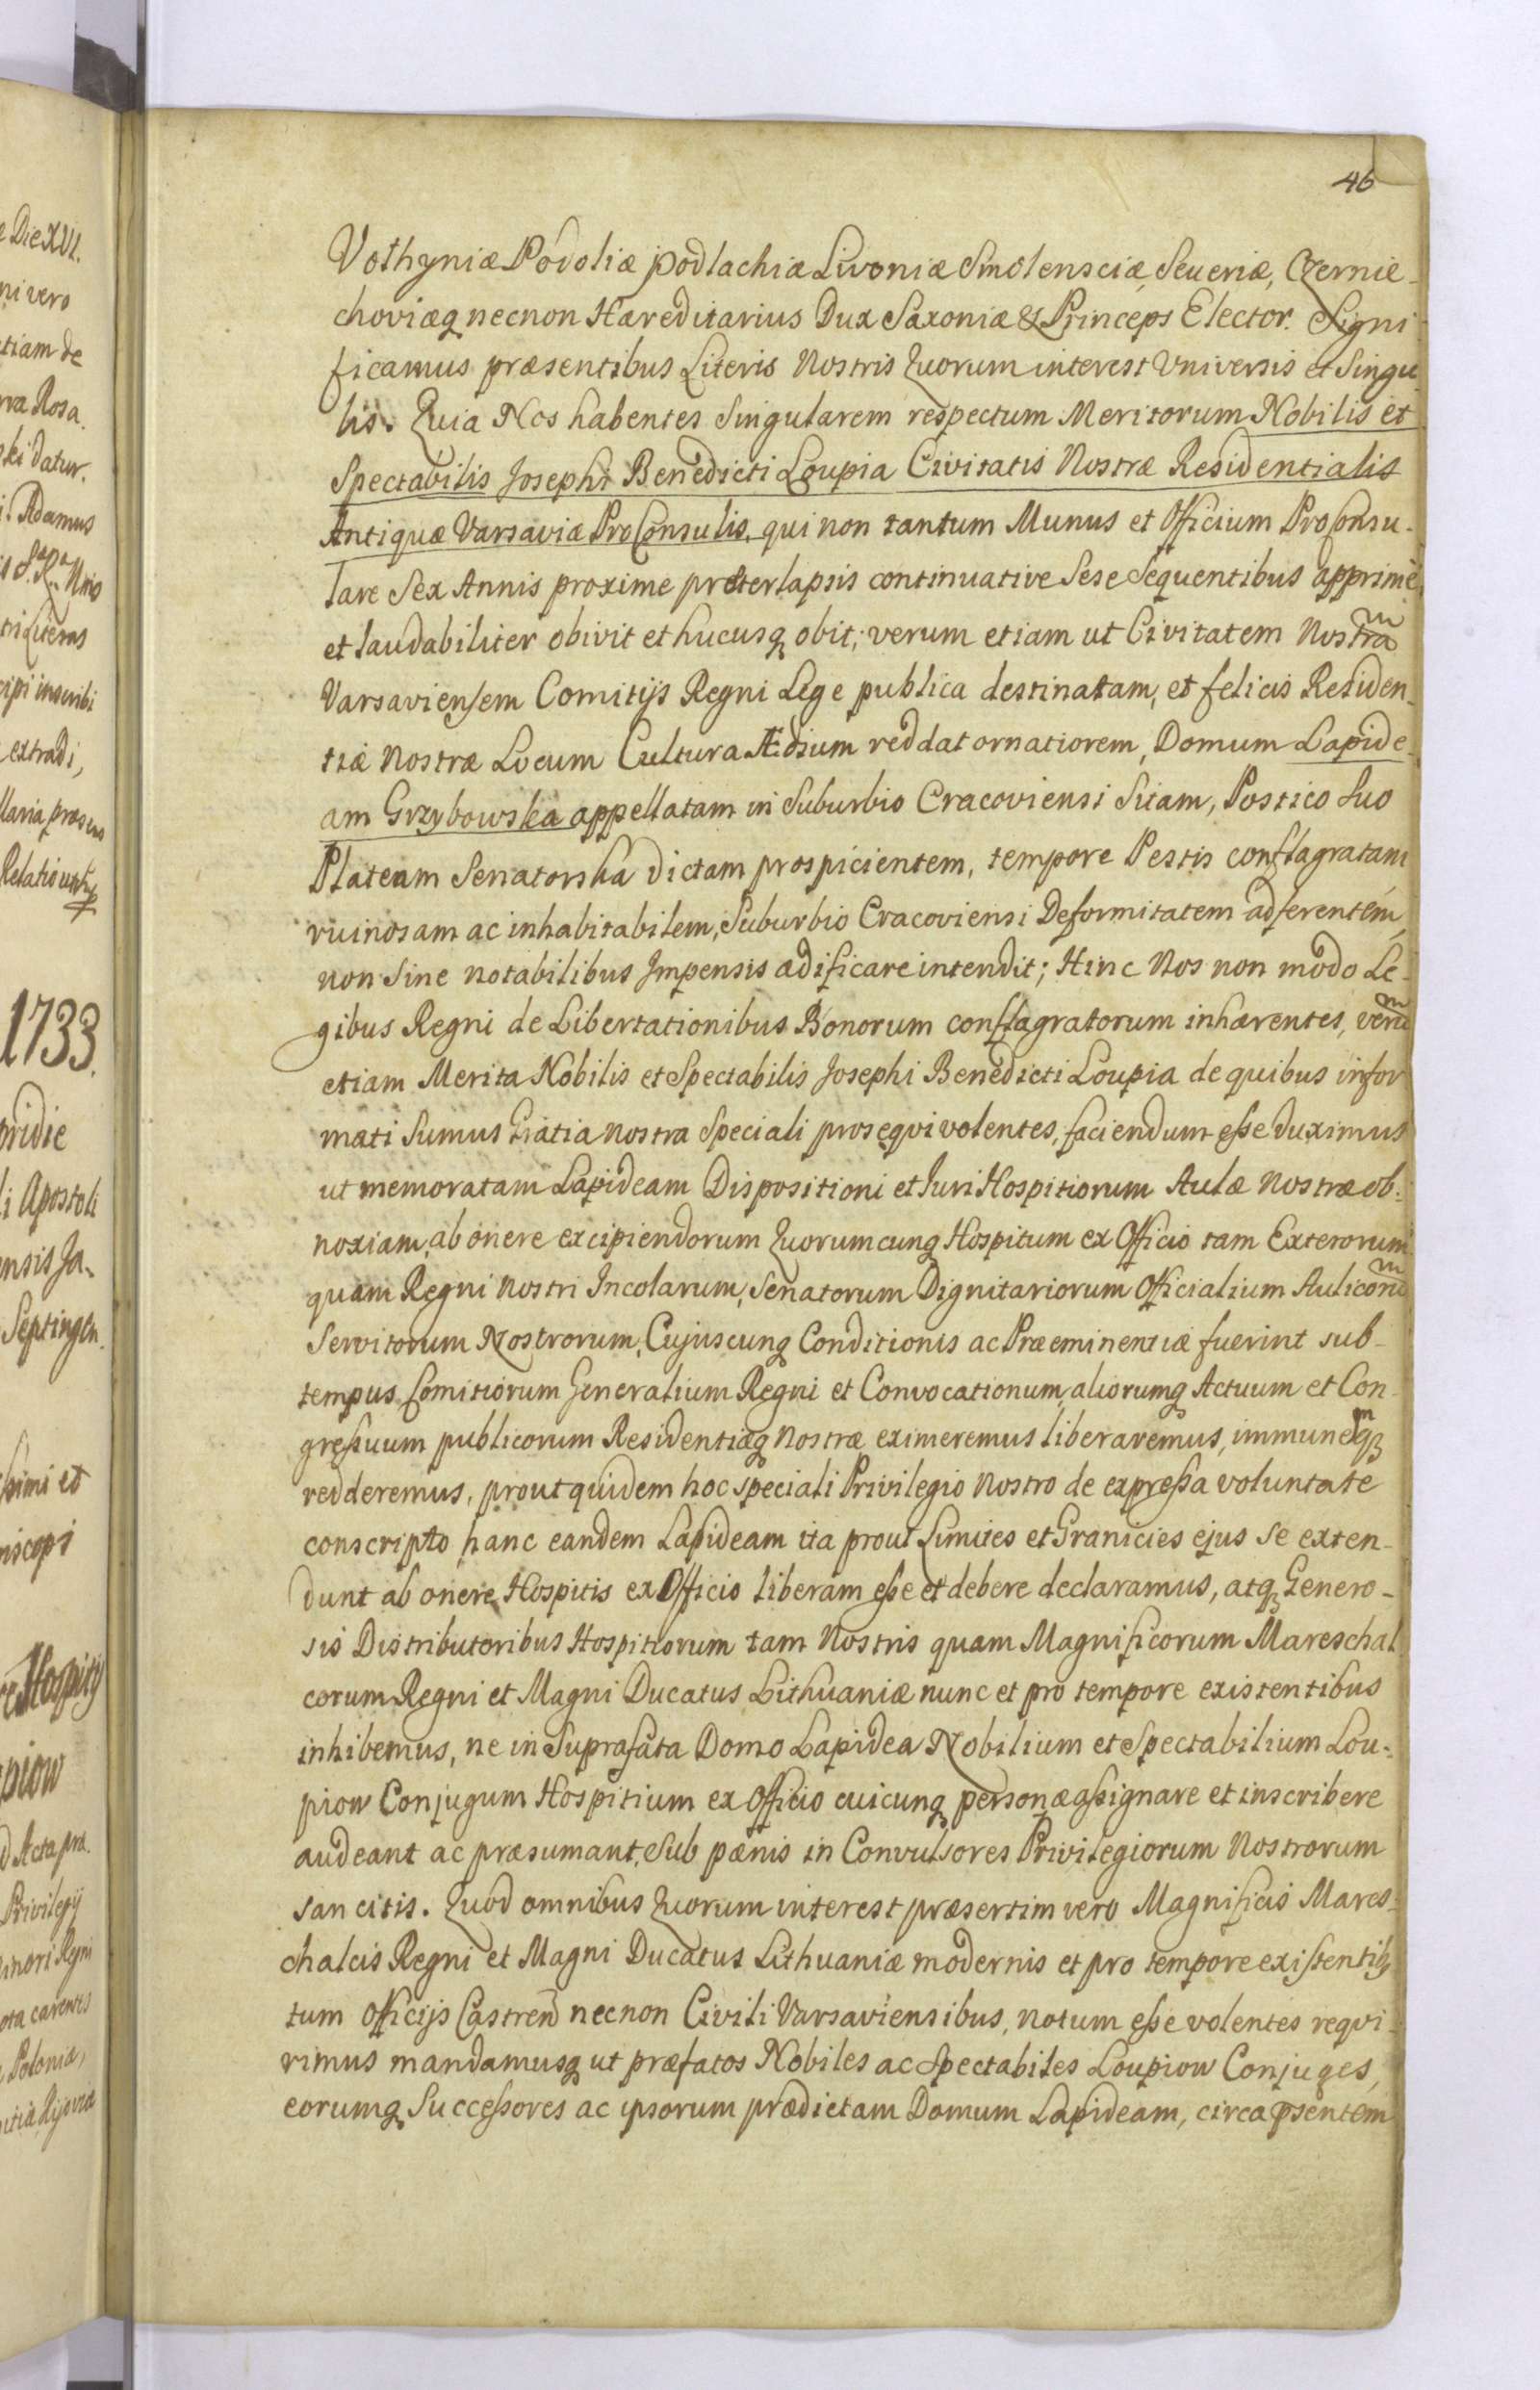 46
Volhyniæ Podoliæ podlachiæ Livoniæ Smolensciæ, Seueriæ, Czernie-
choviæq necnon Hæreditarius Dux Saxoniæ & Princeps Elector. Signi
ficamus præsentibus Literis Nostris Quorum interest Vniversis et Singu
lis. Quia Nos habentes Singularem respectum Meritorum Nobilis et
Spectabilis Josephi Benedicti Loupia Civitatis Nostræ Residentialis
Antiquæ Varsaviæ ProConsulis, qui non tantum Munus et Officium ProConsu-
lare Sex Annis proxime præterlapsis continuative Sese Sequentibus apprime
et laudabiliter obivit et hucusq obit; verum etiam ut Civitatem Nostram
Varsaviensem Comitijs Regni Lege publica destinatam, et felicis Residen-
tiæ Nostræ Locum Cultura Ædium reddat ornatiorem, Domum Lapide-
am Grzybowska appellatam in Suburbio Cracoviensi Sitam, Postico Suo
Plateam Senatorska dictam prospicientem, tempore Pestis conflagratam
ruinosam ac inhabitabilem, Suburbio Cracoviensi Deformitatem adferentem,
non Sine notabilibus Impensis ædificare intendit; Hinc Nos non modo Le-
gibus Regni de Libertationibus Bonorum conflagratorum inhærentes, verum
etiam Merita Nobilis et Spectabilis Josephi Benedicti Loupia de quibus infor
mati Sumus Gratia nostra Speciali proseqvi volentes, faciendum esse duximus
ut memoratam Lapideam Dispositioni et Juri Hospitiorum Aulæ Nostræ ob-
noxiam, ab onere excipiendorum Quorumcunq Hospitum ex Officio tam Exterorum
quam Regni Nostri Incolarum, Senatorum Dignitariorum Officialium Aulicorum
Servitorum Nostrorum, Cujuscunq Conditionis ac Præeminentiæ fuerint sub-
tempus Comitiorum Generalium Regni et Convocationum, aliorumq Actuum et Con-
gressuum publicorum Residentiæq Nostræ eximeremus liberaremus, immunemq
redderemus, prout quidem hoc speciali Privilegio Nostro de expressa voluntate
conscripto hanc eandem Lapideam ita prout Limites et Granicies ejus se exten-
dunt ab onere Hospitis ex Officio liberam esse et debere declaramus, atq Genero-
sis Distributoribus Hospitiorum tam Nostris quam Magnificorum Mareschal
corum Regni et Magni Ducatus Lithuaniæ nunc et pro tempore existentibus
inhibemus, ne in Suprafata Domo Lapidea Nobilium et Spectabilium Lou-
piow Conjugum Hospitium ex Officio cuicunq personæ assignare et inscribere
audeant ac præsumant, Sub pænis in Convulsores Privilegiorum Nostrorum
sancitis. Quod omnibus Quorum interest præsertim vero Magnificis Mares-
chalcis Regni et Magni Ducatus Lithuaniæ modernis et pro tempore existentibq
tum Officijs Castren necnon Civili Varsaviensibus, notum esse volentes reqvi-
rimus mandamusq ut præfatos Nobiles ac Spectabiles Loupiow Conjuges,
eorumq Successores ac ipsorum prædictam Domum Lapideam, circa psentem
e Die XVI.
ni vero
tiam de
rva Rosa.
ki datur.
Adamus
inscribi
extradi,
1733.
pridie
li Apostoli
ensis Ja-
Septingen.
ssimi et
iscopi
Hospitij
piow
d Acta præ
Privilegij
carentes
Polonia,
Kijoviæ